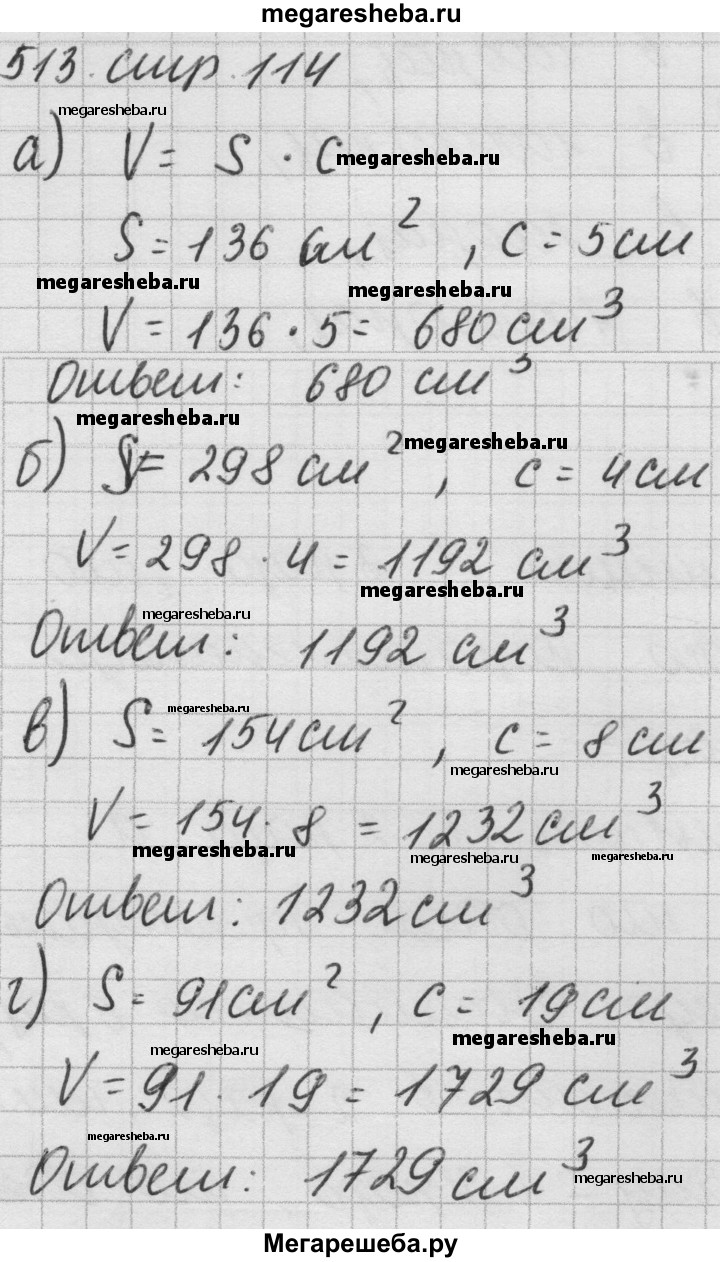 megaresheba.ru
513. стр. 114
megaresheba.ru
а) V = S · c megaresheba.ru
S = 136 см², c = 5 см
megaresheba.ru megaresheba.ru
V = 136 · 5 = 680 см³
Ответ: 680 см³
megaresheba.ru megaresheba.ru
б) S = 298 см², c = 4 см
V = 298 · 4 = 1192 см³
megaresheba.ru
megaresheba.ru
Ответ: 1192 см³
megaresheba.ru
в) S = 154 см², c = 8 см
megaresheba.ru
V = 154 · 8 = 1232 см³
megaresheba.ru megaresheba.ru megaresheba.ru
Ответ: 1232 см³
г) S = 91 см², c = 19 см
megaresheba.ru megaresheba.ru
V = 91 · 19 = 1729 см³
megaresheba.ru
Ответ: 1729 см³ megaresheba.ru
Мегарешеба.ру